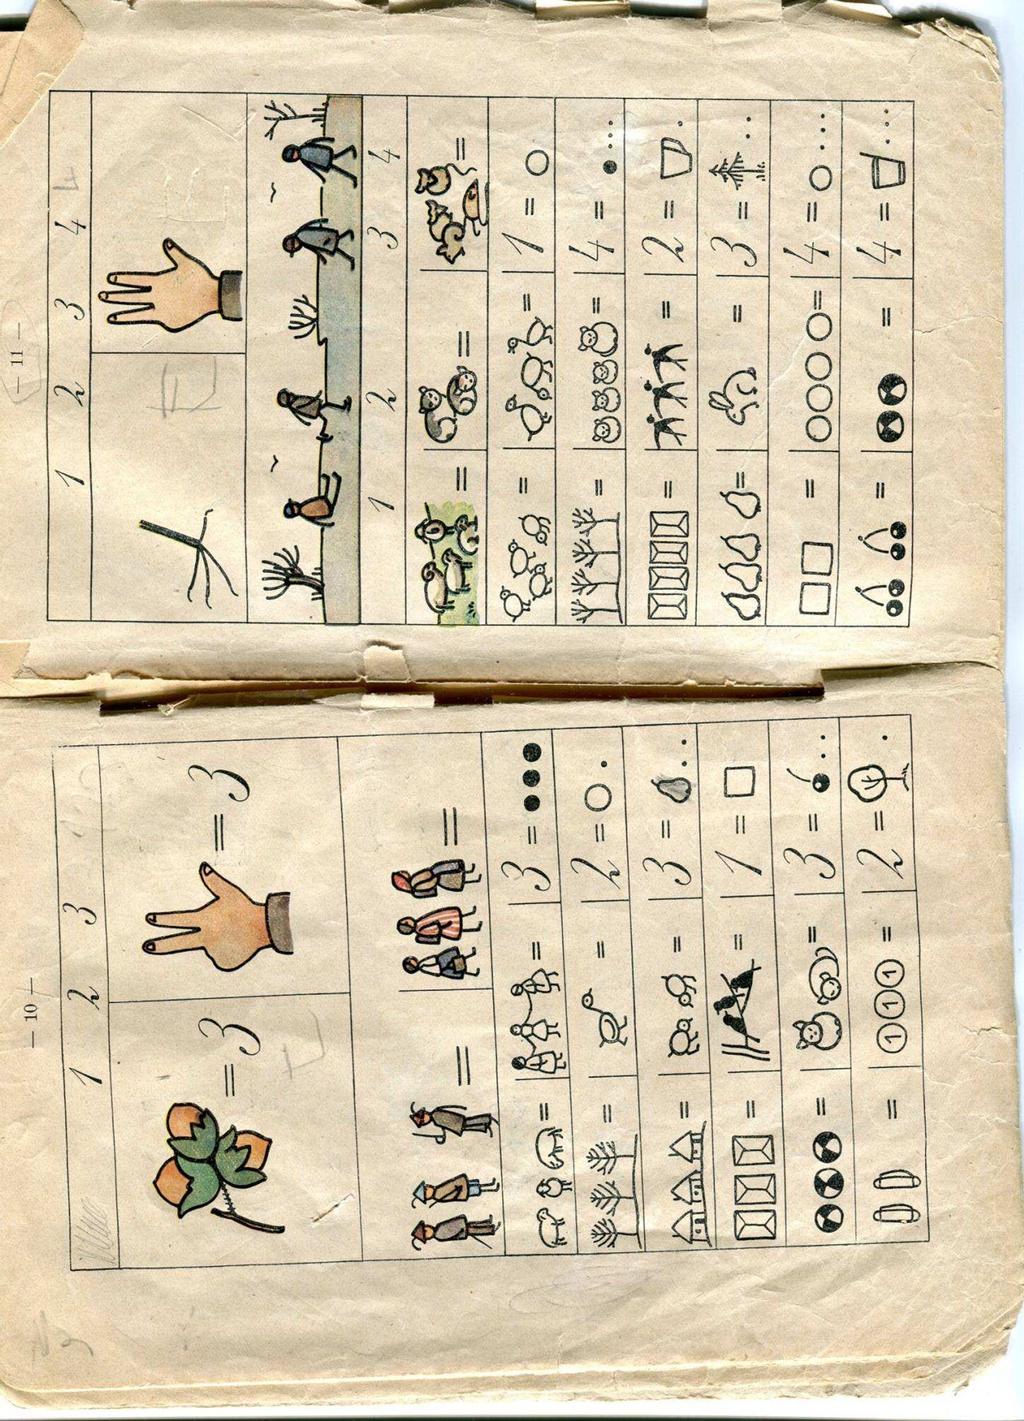 — 10 —
1 2 3
= 3 = 3
= =
= = 3 =
= = 2 =
= = 3 =
= = 1 =
= = 3 =
= 1 1 1 = 2 =
— 11 —
1 2 3 4
1 2 3 4
= = =
= = 1 =
= = 4 =
= = 2 =
= = 3 =
= = 4 =
= = 4 =